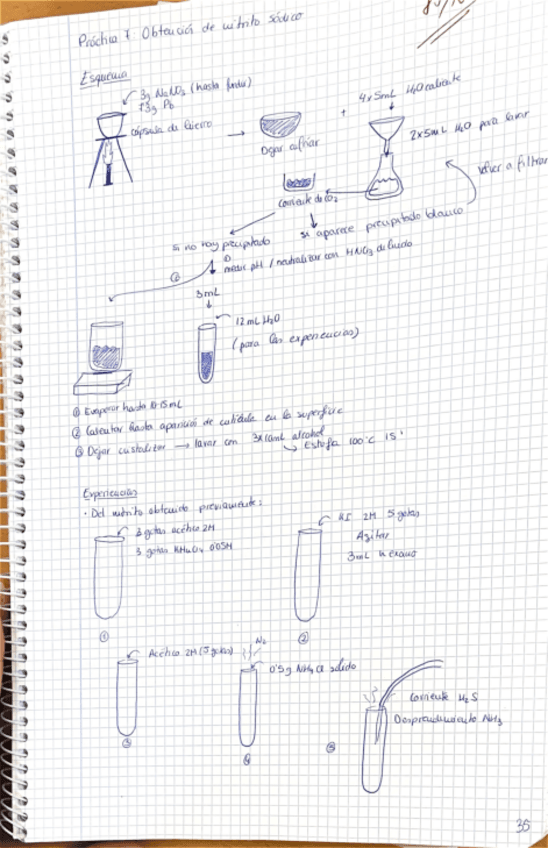 Práctica 7 Obtención de nitrito sódico
Esquema
3g NaNO3 (hasta fundir)
+ 3g Pb
cápsula de hierro
Dejar enfriar
+
4x5mL H2O caliente
2x5mL H2O para lavar
volver a filtrar
corriente de CO2
si no hay precipitado
si aparece precipitado blanco
① medir pH / neutralizar con HNO3 diluido
②
3mL
12mL H2O
(para las experiencias)
① Evaporar hasta 10-15mL
② Calentar hasta aparición de cutícula en la superficie
③ Dejar cristalizar → lavar con 3x10mL alcohol
↳ Estufa 100°C 15'
Experiencias
· Del nitrito obtenido previamente:
3 gotas acético 2M
3 gotas KMnO4 0'05M
KI 2M 5 gotas
Agitar
3mL hexano
①
②
Acético 2M (5 gotas)
N2
0'5g NH4Cl sólido
Corriente H2S
Desprendimiento NH3
③
④
⑤
35